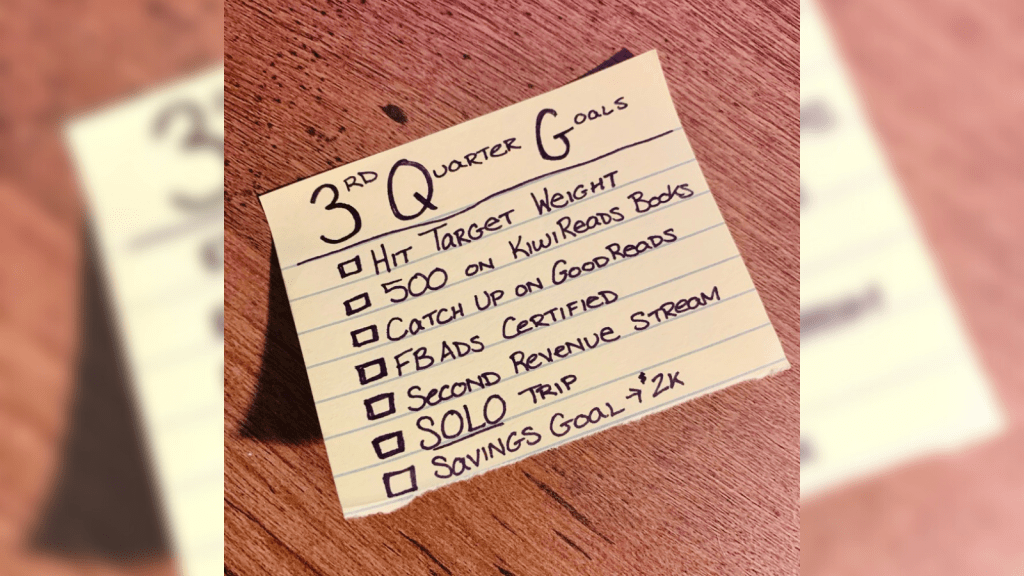 3RD QUARTER GOALS
HIT TARGET WEIGHT
500 ON KIWIREADS BOOKS
CATCH UP ON GOODREADS
FB ADS CERTIFIED
SECOND REVENUE STREAM
SOLO TRIP
SAVINGS GOAL → $2K